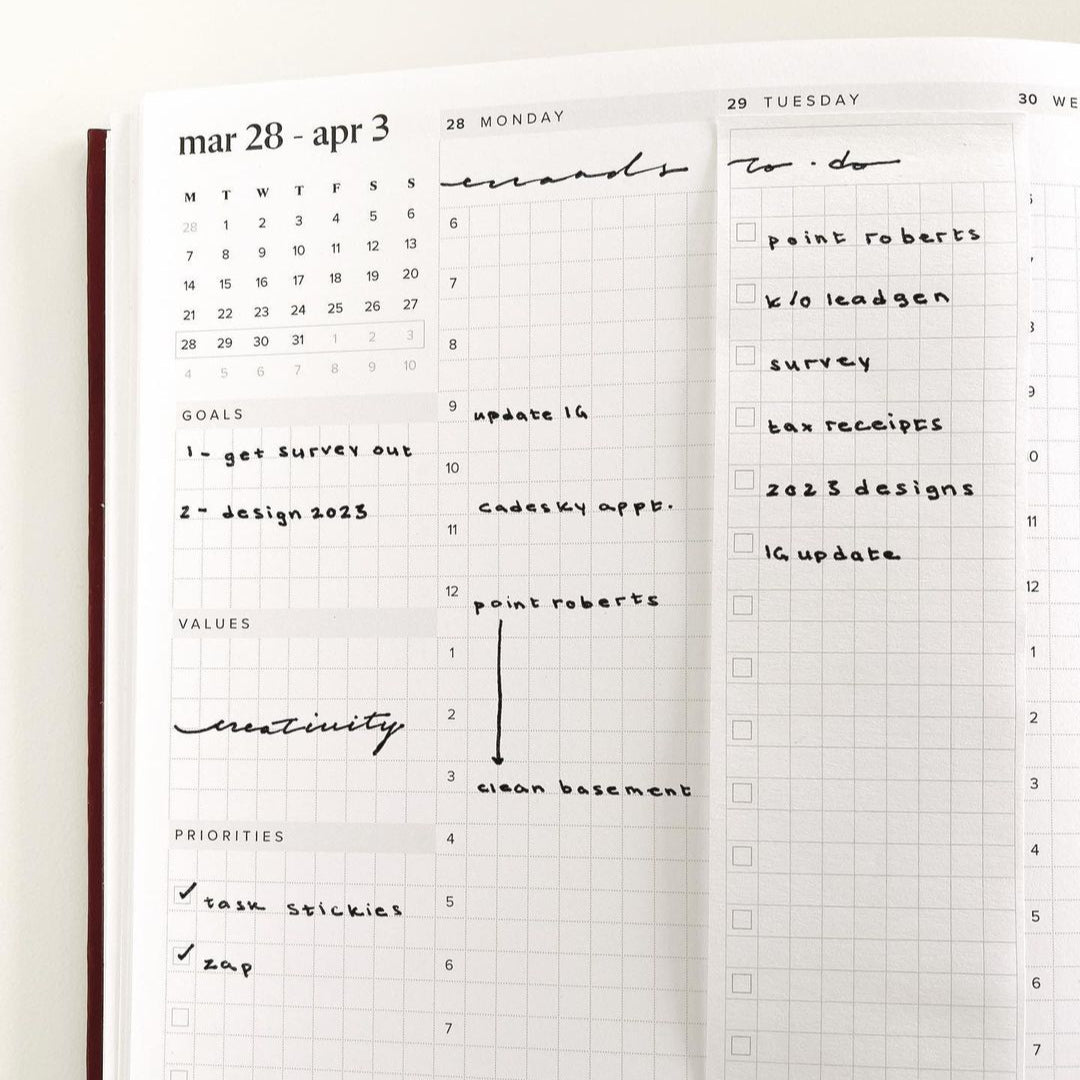 mar 28 - apr 3
M T W T F S S
28 1 2 3 4 5 6
7 8 9 10 11 12 13
14 15 16 17 18 19 20
21 22 23 24 25 26 27
28 29 30 31 1 2 3
4 5 6 7 8 9 10
GOALS
1 - get survey out
2 - design 2023
VALUES
creativity
PRIORITIES
task stickies
zap
28 MONDAY
errands
6
7
8
9 update IG
10
cadesky appt.
11
12 point roberts
1
2
3 clean basement
4
5
6
7
29 TUESDAY
to · do
point roberts
k/o leadgen
survey
tax receipts
2023 designs
IG update
30 WE
9
0
11
12
1
2
3
4
5
6
7